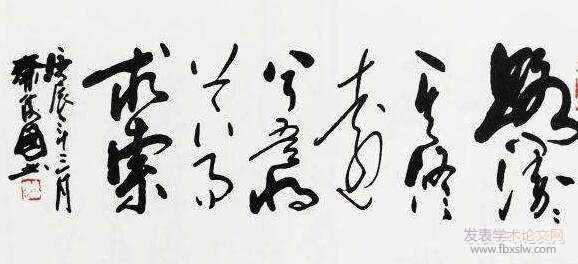 路漫漫
其修
遠
兮吾将
上下而
求索
庚辰 三月
发表学术论文网
www.fbxslw.com